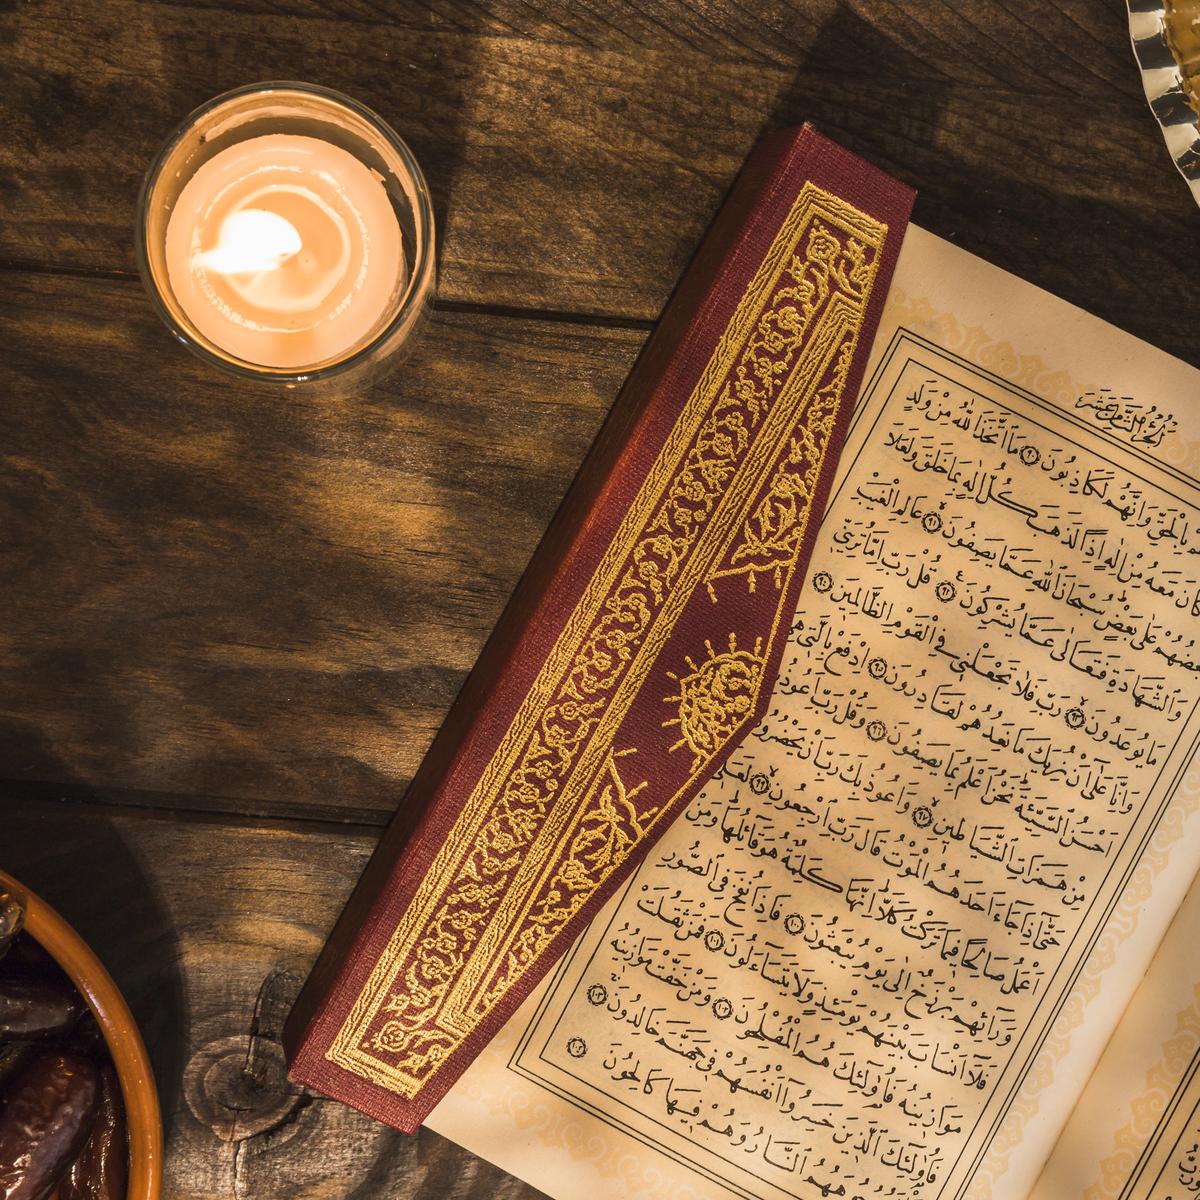 اَلْجُزْءُ الثَّامِنَ عَشَرَ
بِالْحَقِّ وَاِنَّهُمْ لَكَاذِبُونَ ٩٠ مَا اتَّخَذَ اللّٰهُ مِنْ وَلَدٍ
كَانَ مَعَهُ مِنْ اِلٰهٍ اِذًا لَذَهَبَ كُلُّ اِلٰهٍ بِمَا خَلَقَ وَلَعَلَا
بَعْضُهُمْ عَلٰى بَعْضٍ سُبْحَانَ اللّٰهِ عَمَّا يَصِفُونَ ٩١ عَالِمِ الْغَيْبِ
وَالشَّهَادَةِ فَتَعَالٰى عَمَّا يُشْرِكُونَ ٩٢ قُلْ رَبِّ اِمَّا تُرِيَنِّي
مَا يُوعَدُونَ ٩٣ رَبِّ فَلَا تَجْعَلْنِي فِي الْقَوْمِ الظَّالِمِينَ ٩٤
وَاِنَّا عَلٰٓى اَنْ نُرِيَكَ مَا نَعِدُهُمْ لَقَادِرُونَ ٩٥ اِدْفَعْ بِالَّتِي هِيَ
اَحْسَنُ السَّيِّئَةَ نَحْنُ اَعْلَمُ بِمَا يَصِفُونَ ٩٦ وَقُلْ رَبِّ اَعُوذُ
مِنْ هَمَزَاتِ الشَّيَاطِينِ ٩٧ وَاَعُوذُ بِكَ رَبِّ اَنْ يَحْضُرُونِ
حَتّٰٓى اِذَا جَآءَ اَحَدَهُمُ الْمَوْتُ قَالَ رَبِّ ارْجِعُونِ ٩٩ لَعَلِّي
اَعْمَلُ صَالِحًا فِيمَا تَرَكْتُ كَلَّا اِنَّهَا كَلِمَةٌ هُوَ قَآئِلُهَا وَمِنْ
وَرَآئِهِمْ بَرْزَخٌ اِلٰى يَوْمِ يُبْعَثُونَ ١٠٠ فَاِذَا نُفِخَ فِي الصُّورِ
فَلَآ اَنْسَابَ بَيْنَهُمْ يَوْمَئِذٍ وَلَا يَتَسَآءَلُونَ ١٠١ فَمَنْ ثَقُلَتْ
مَوَازِينُهُ فَاُولٰٓئِكَ هُمُ الْمُفْلِحُونَ ١٠٢ وَمَنْ خَفَّتْ مَوَازِينُهُ
فَاُولٰٓئِكَ الَّذِينَ خَسِرُوٓا اَنْفُسَهُمْ فِي جَهَنَّمَ خَالِدُونَ ١٠٣
النَّارُ وَهُمْ فِيهَا كَالِحُونَ ١٠٤